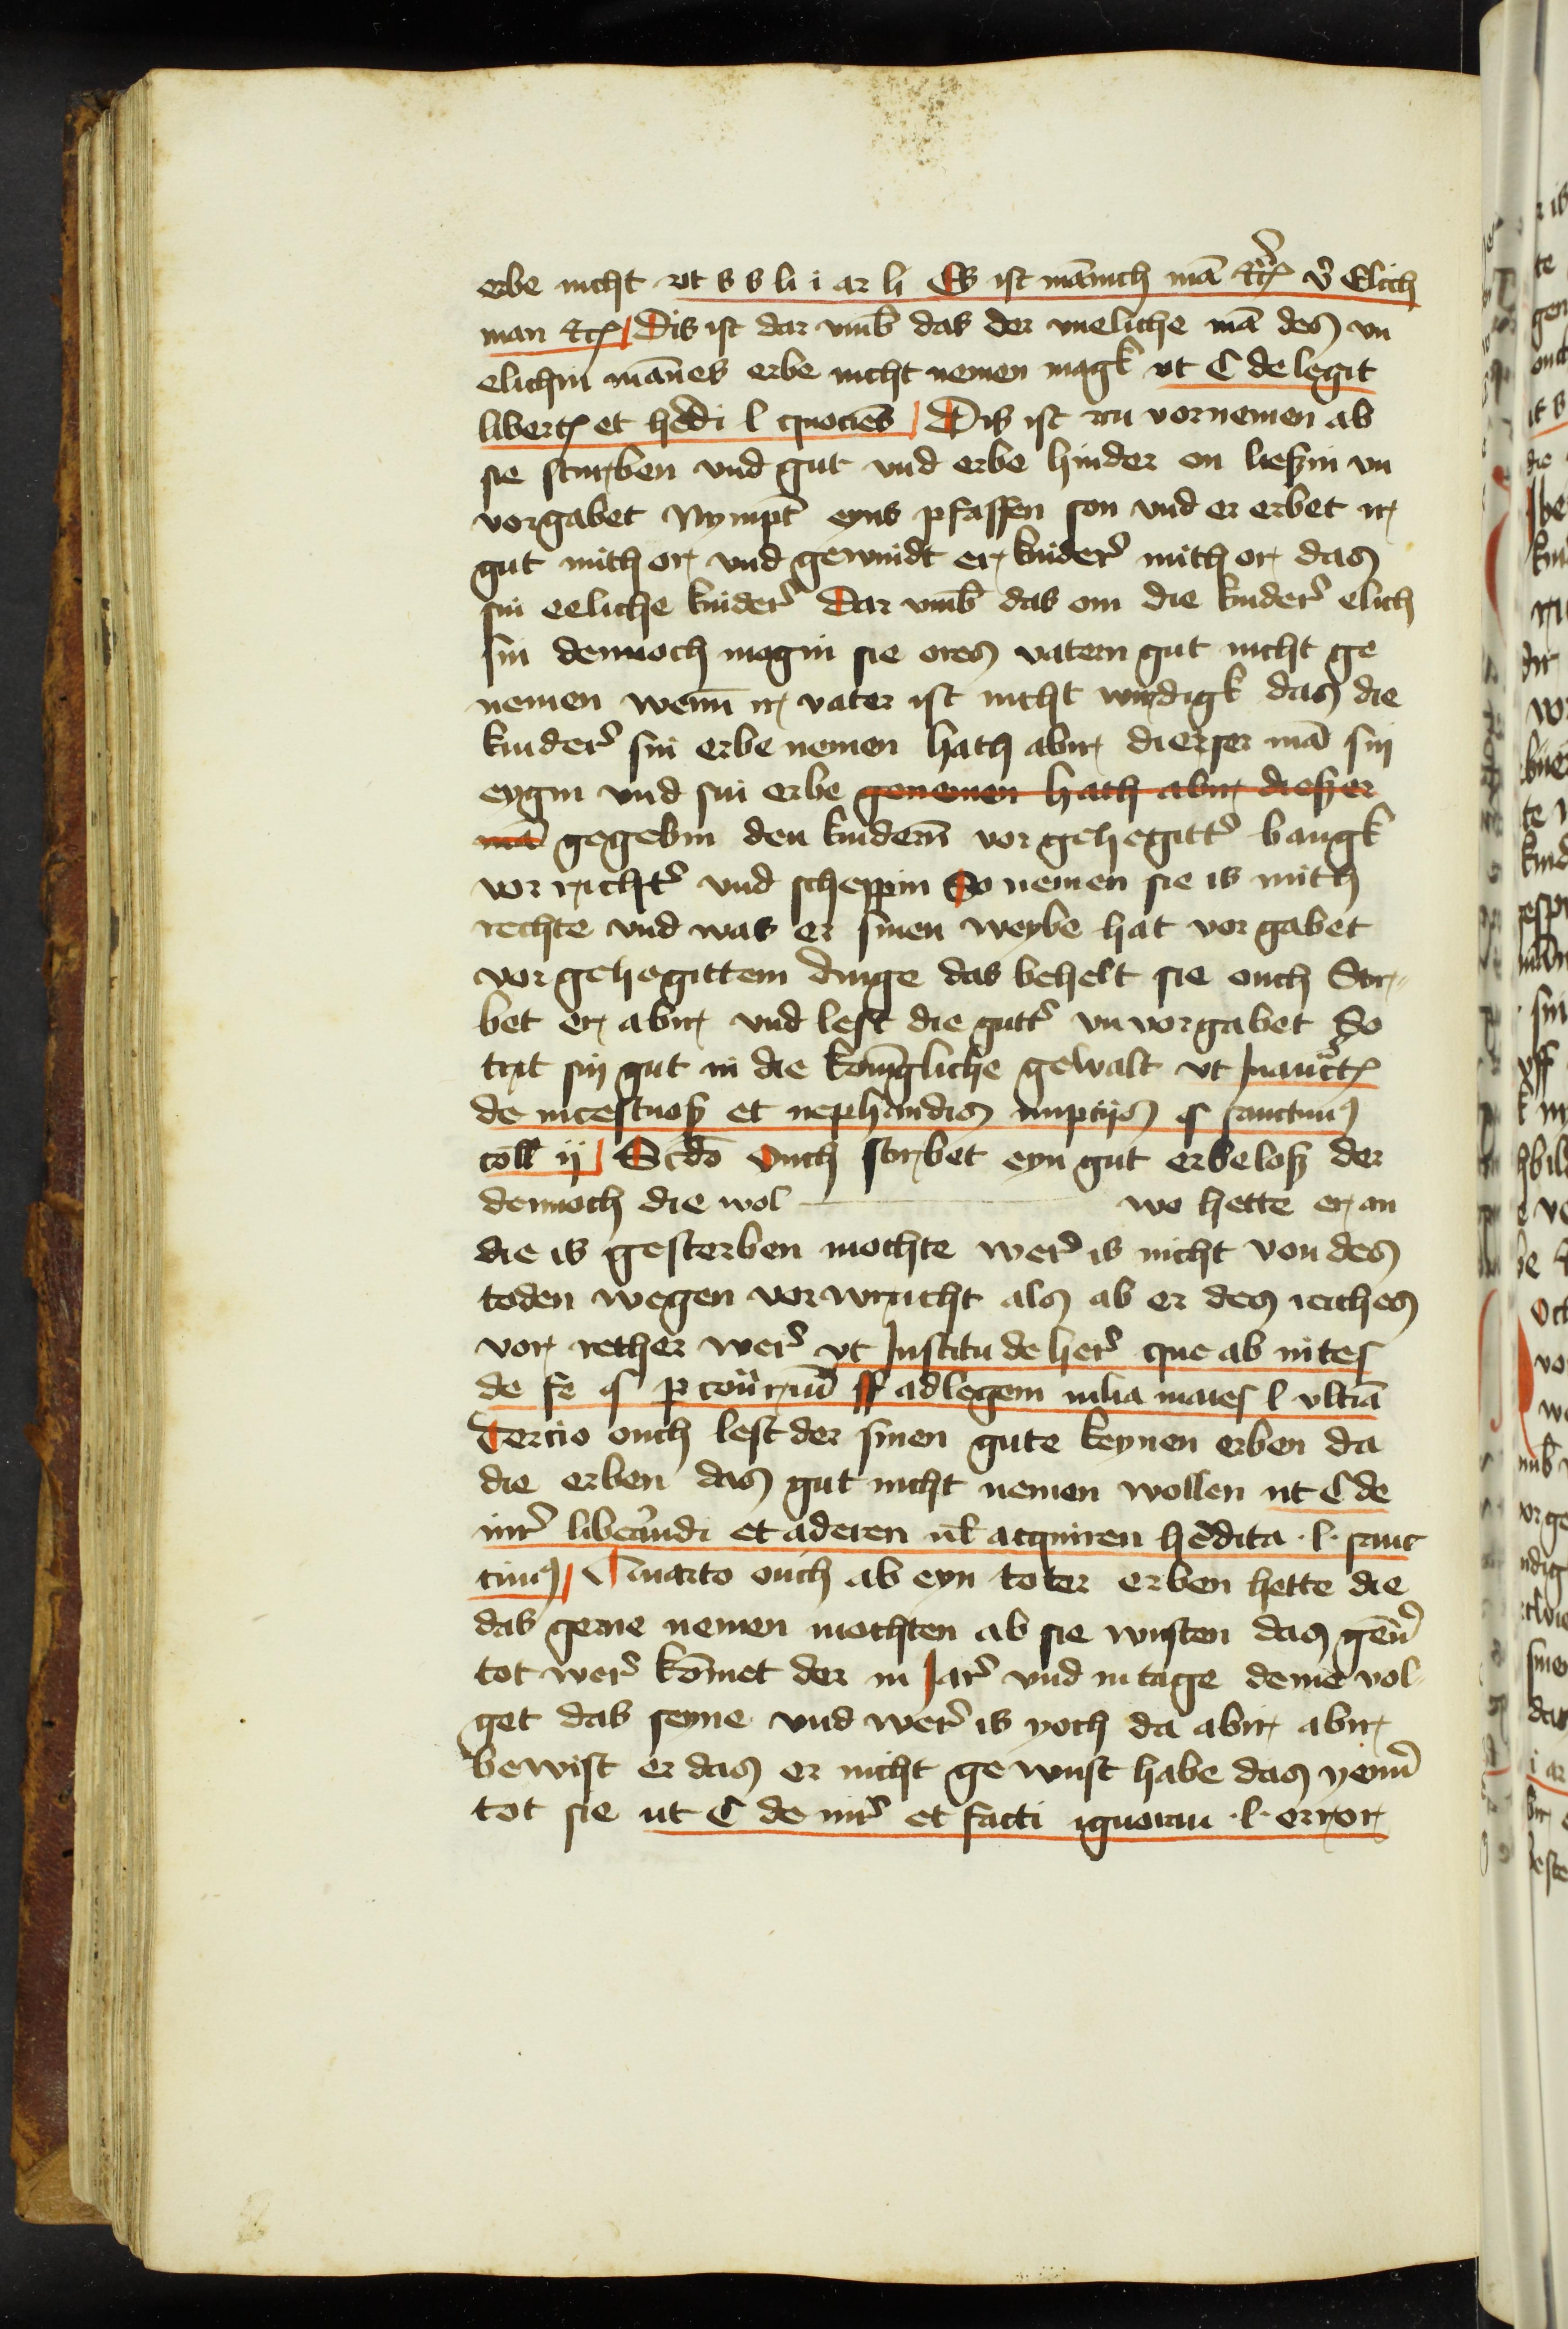 erbe nicht vt s s li i ar li Es ist mānich mā etc̄ v̓ Elich
man etc̄ Dis ist dar vmb̄ das der vneliche mā des vn
elichin mānes erbe nicht nemen magk vt C de legit
libert et hēdi l quociēs Dis ist zcu vornemen ab
sie sturben vnd gut vnd erbe hinder en lieszin vn
vorgabet Nympt eyns pfaffen son vnd er erbet ir
gut mith or vnd gewindt er kinder̓ mith or das
sin eeliche kinder̓ Dar vmb̄ das om die kinder̓ elich
sin dennoch mogin sie ores vatern gut nicht ge
nemen wenn̄ ir vater ist nicht wirdigk das die
kinder̓ sin erbe nemen hath abir dierser mā sin
eygin vnd sin erbe genemen hath abir dieszer
mā gegebin den kindern̄ vor gehegitt̓ bangk
vor richt̓ vnd scheppin So nemen sie is mith
rechte vnd was er sinen weybe hat vor gabet
vor gehegittem dinge das behelt sie ouch Stir
bet er abir vnd lest die gutt̓ vnvorgabet So
trit sin gut in die konīgliche gewalt vt Inaūct
de incestuosz et nephandis nupcijs § sanctim9
coll ij Scdō Ouch stirbet eyn gut erbelosz der
dennoch die wol wo hette er an
die is gesterben mochte wer̓ is nicht von des
toden wegen vorwracht als ab er des reiches
vor rether wer̓ vt Institu de her̓ que ab intes
de fe § p coūrsiū ff ad legem iulia maies l vltiā
Tercio ouch lest der sinen gute keynen erben da
die erben das gut nicht nemen wollen ut C de
iur̓ libera̓ndi et aderen ul̄ acquiren hēdita l sanc
tim9 Quarto ouch ab eyn toter erben hette die
das gerne nemen mochten ab sie wusten das gen̄̓
tot wer̓ kom̄et der in Jar̓ vnd in tage deme vol
get das seyne vnd wer̓ is yoch da abir abir
bewist er das er nicht gewust habe das yenn̓
tot sie ut C de iur̓ et facti ignoran l error